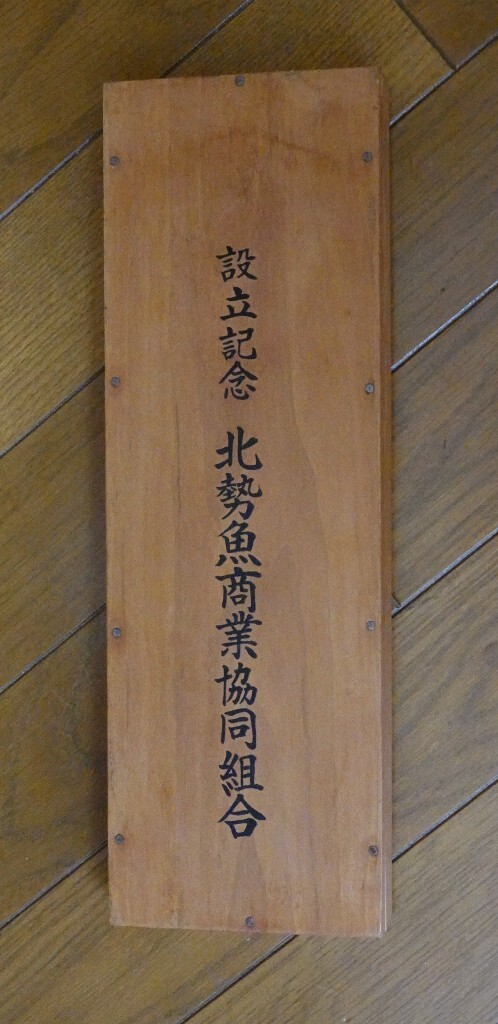 設立記念 北勢魚商業協同組合